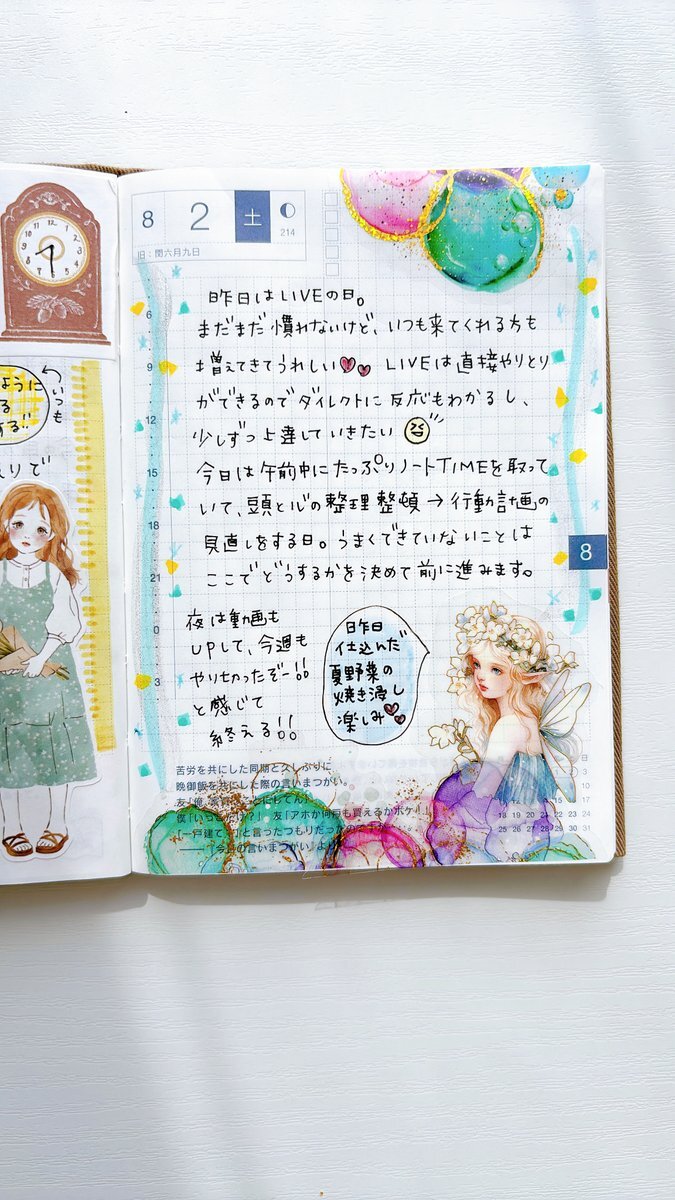 ように
る
する!!
いつも
りで
8 2 土
214
旧：閏六月九日
昨日はLIVEの日。
まだまだ慣れないけど、いつも来てくれる方も
増えてきてうれしい LIVEは直接やりとり
ができるのでダイレクトに反応もわかるし、
少しずつ上達していきたい
今日は午前中にたっぷりノートTIMEを取って
いて、頭と心の整理整頓→行動計画の
見直しをする日。うまくできていないことは
ここでどうするかを決めて前に進みます。
6
9
12
15
18
21
0
3
8
夜は動画も
UPして、今週も
やりきったぞー!!
と感じて
終える!!
昨日
仕込んだ
夏野菜の
焼き浸し
楽しみ
苦労を共にした同期と久しぶりに
晩御飯を共にした際の言いまつがい。
友「俺、
僕「いっ 友「アホか何百も買えるかボケ！」
「一戸建て」と言ったつもりだった
──「今日の言いまつがい」より
18 19 20 21 22 23 24
25 26 27 28 29 30 31